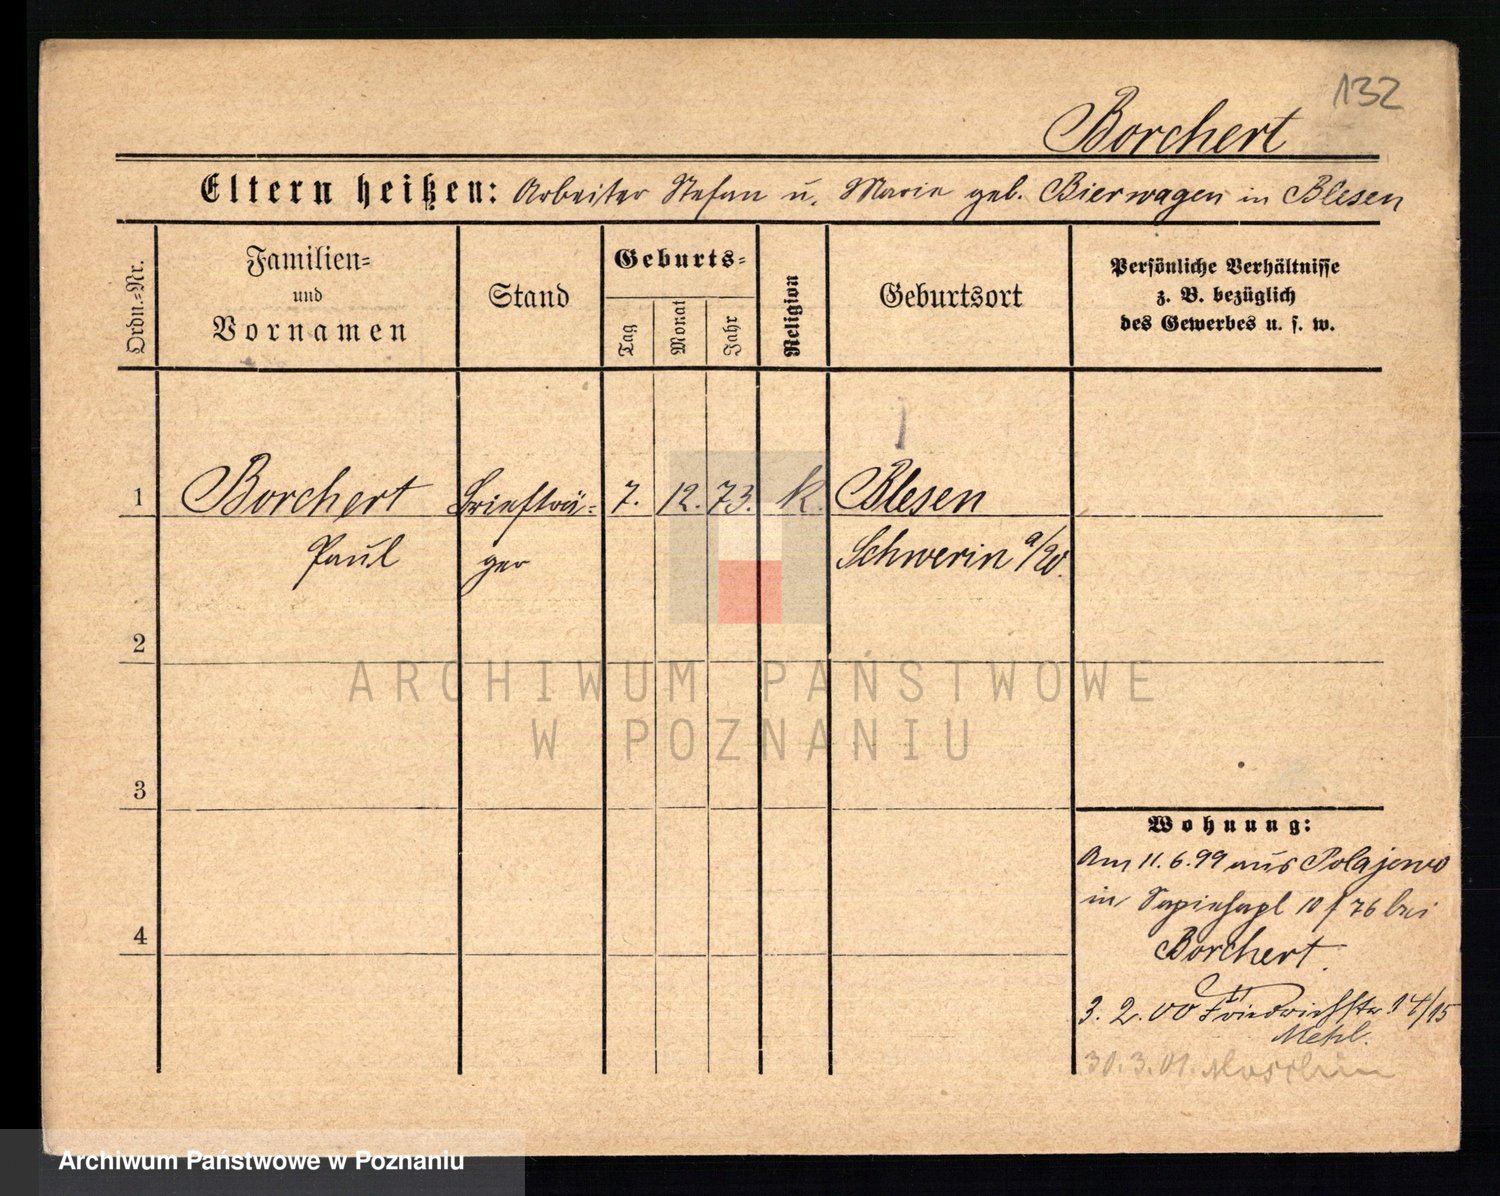 132
Borchert
Eltern heißen: Arbeiter Stefan u. Marie geb. Bierwagen in Blesen
Ordn.-Nr.
Familien-
und
Vornamen
Stand
Geburts-
Tag
Monat
Jahr
Religion
Geburtsort
Persönliche Verhältnisse
z. B. bezüglich
des Gewerbes u. s. w.
1 Borchert Briefträ- 7. 12. 73. k. Blesen
Paul ger Schwerin a/W.
2
3
4
Wohnung:
Am 11.6.99 aus Polajewo
in Sapiehapl 10 f 76 bei
Borchert.
3. 2. 00 Friedrichstr 14/15
Mehl.
30.3.01.
ARCHIWUM PAŃSTWOWE
W POZNANIU
Archiwum Państwowe w Poznaniu